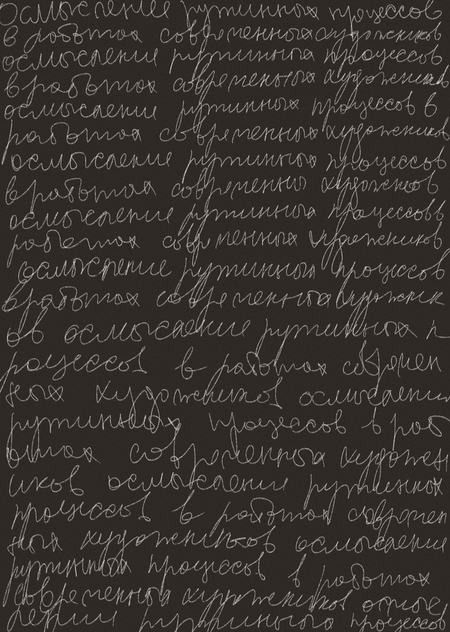 осмысление рутинных процессов
в работах современных художников
осмысление рутинных процессов
в работах современных художников
осмысление рутинных процессов в
работах современных художников
осмысление рутинных процессов
в работах современных художников
осмысление рутинных процессов в
работах современных художников
осмысление рутинных процессов
в работах современных художник
ов осмысление рутинных п
роцессов в работах современ
ных художников осмысление
рутинных процессов в раб
отах современных художн
иков осмысление рутинных
процессов в работах современ
ных художников осмысление
рутинных процессов в работах
современных художников
рутинного процессов